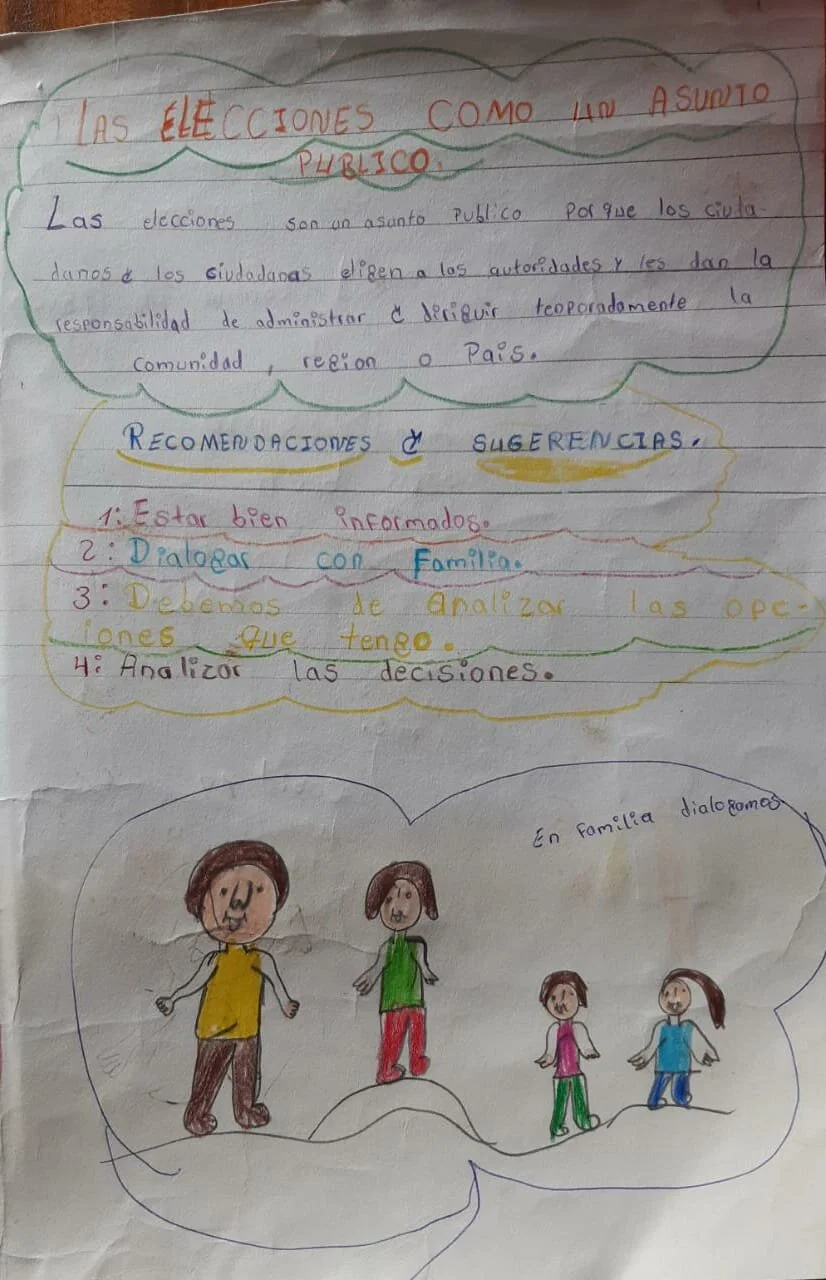 LAS ELECCIONES COMO UN ASUNTO
PUBLICO.
Las elecciones son un asunto Publico Por que los ciuta-
danos & los ciudadanas eligen a las autoridades y les dan la
responsabilidad de administrar & diriguir temporadamente la
Comunidad, region o Pais.
RECOMENDACIONES & SUGERENCIAS.
1: Estar bien informados.
2: Dialogar con Familia.
3: Debemos de analizar las opc-
iones que tengo.
4: Analizar las decisiones.
En familia dialogamos